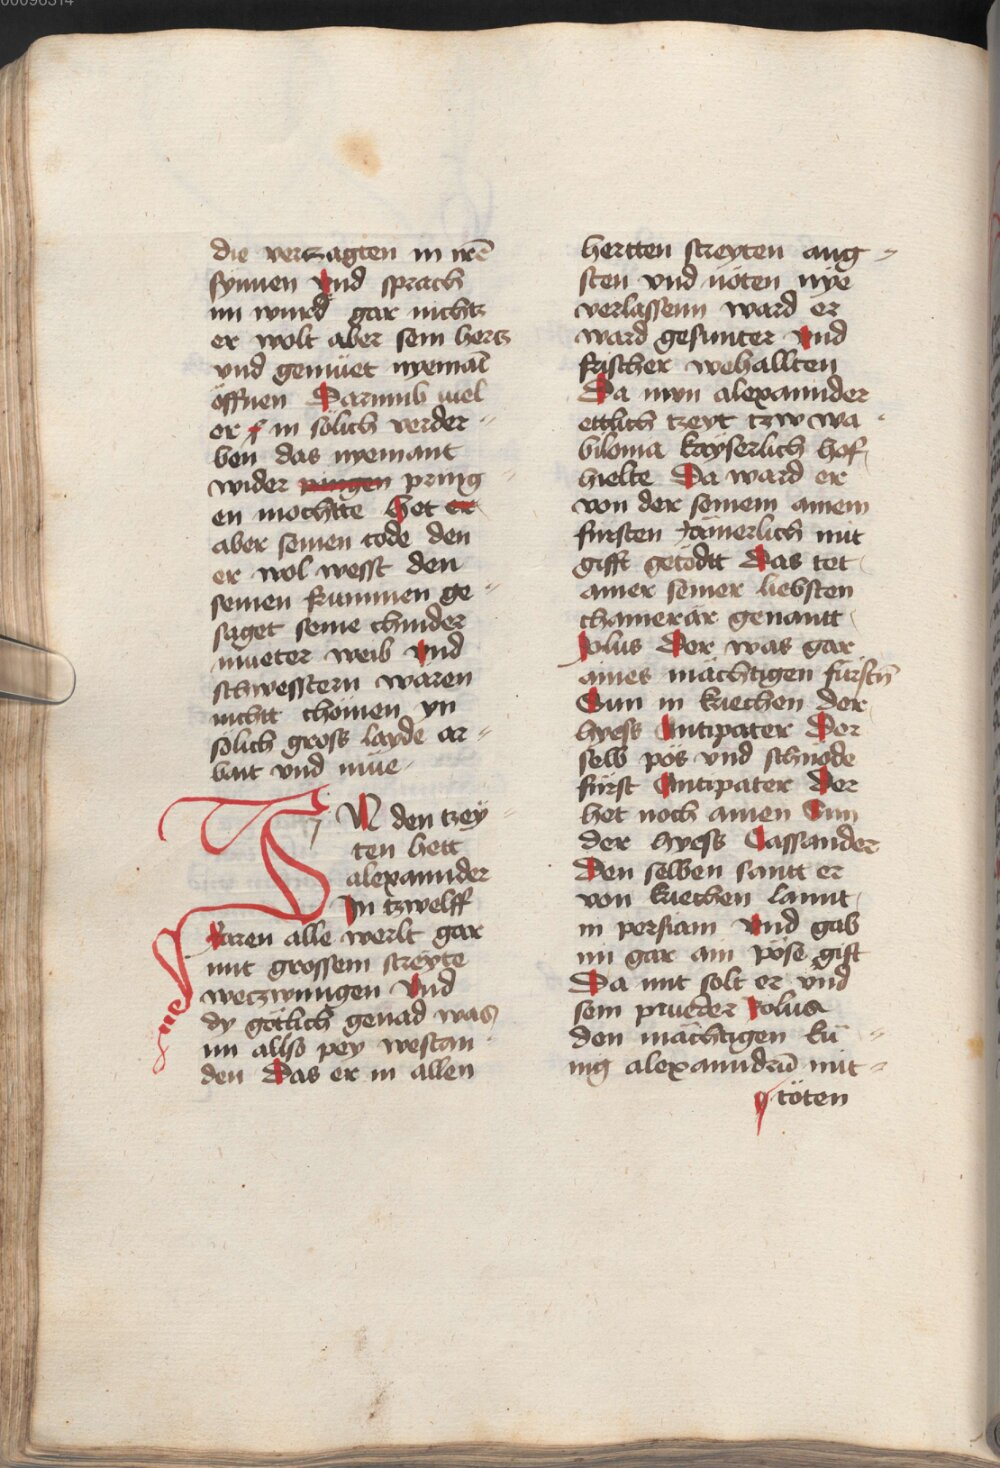 die verczagten in irē
synnen und sprach
im wurd gar nichtz
er wolt aber sein hercz
vnd gemüet nyemāt
öffnen Darumb viel
er in solich verder
ben das nyemant
wider pringen pring
en mochtte Het er
aber seinen tode den
er wol wesst den
seinen kummen ge
saget seine chinder
mueter weib vnd
schwesstern waren
nicht chömen yn
sölich gross layde ar
bait vnd müe
IN den tzey
ten hett
alexannder
In tzwelff
Jaren alle werlt gar
mit grossem streyte
weczwungen vnd
dy götlich genad was
im allso pey westan
den Das er in allen
hertten streyten ang
sten vnd nöten nye
verlassenn ward er
ward gesunter vnd
frischer wehallten
Da nwn alexannder
ettlich tzeyt tzw wa
bilonia kayserlich hof
hielte Da ward er
von der seinem ainem
fursten Jämerlich mit
gifft getödtt Das tet
ainer seiner liebsten
chamerär genantt
Jolus Der was gar
aines mächtigen fürstn̄
Sun in kriechen der
hyess Antipater Der
selb pös vnd schnöde
fürst Antipater Der
het noch ainen Sun
der hyess Cassander
Den selben santt er
von kriechen lannt
in persiam vnd gab
im gar ain pöse gift
Da mit solt er vnd
sein prueder Jolus
den mächtigen kü
nig alexanndrū mit
töten